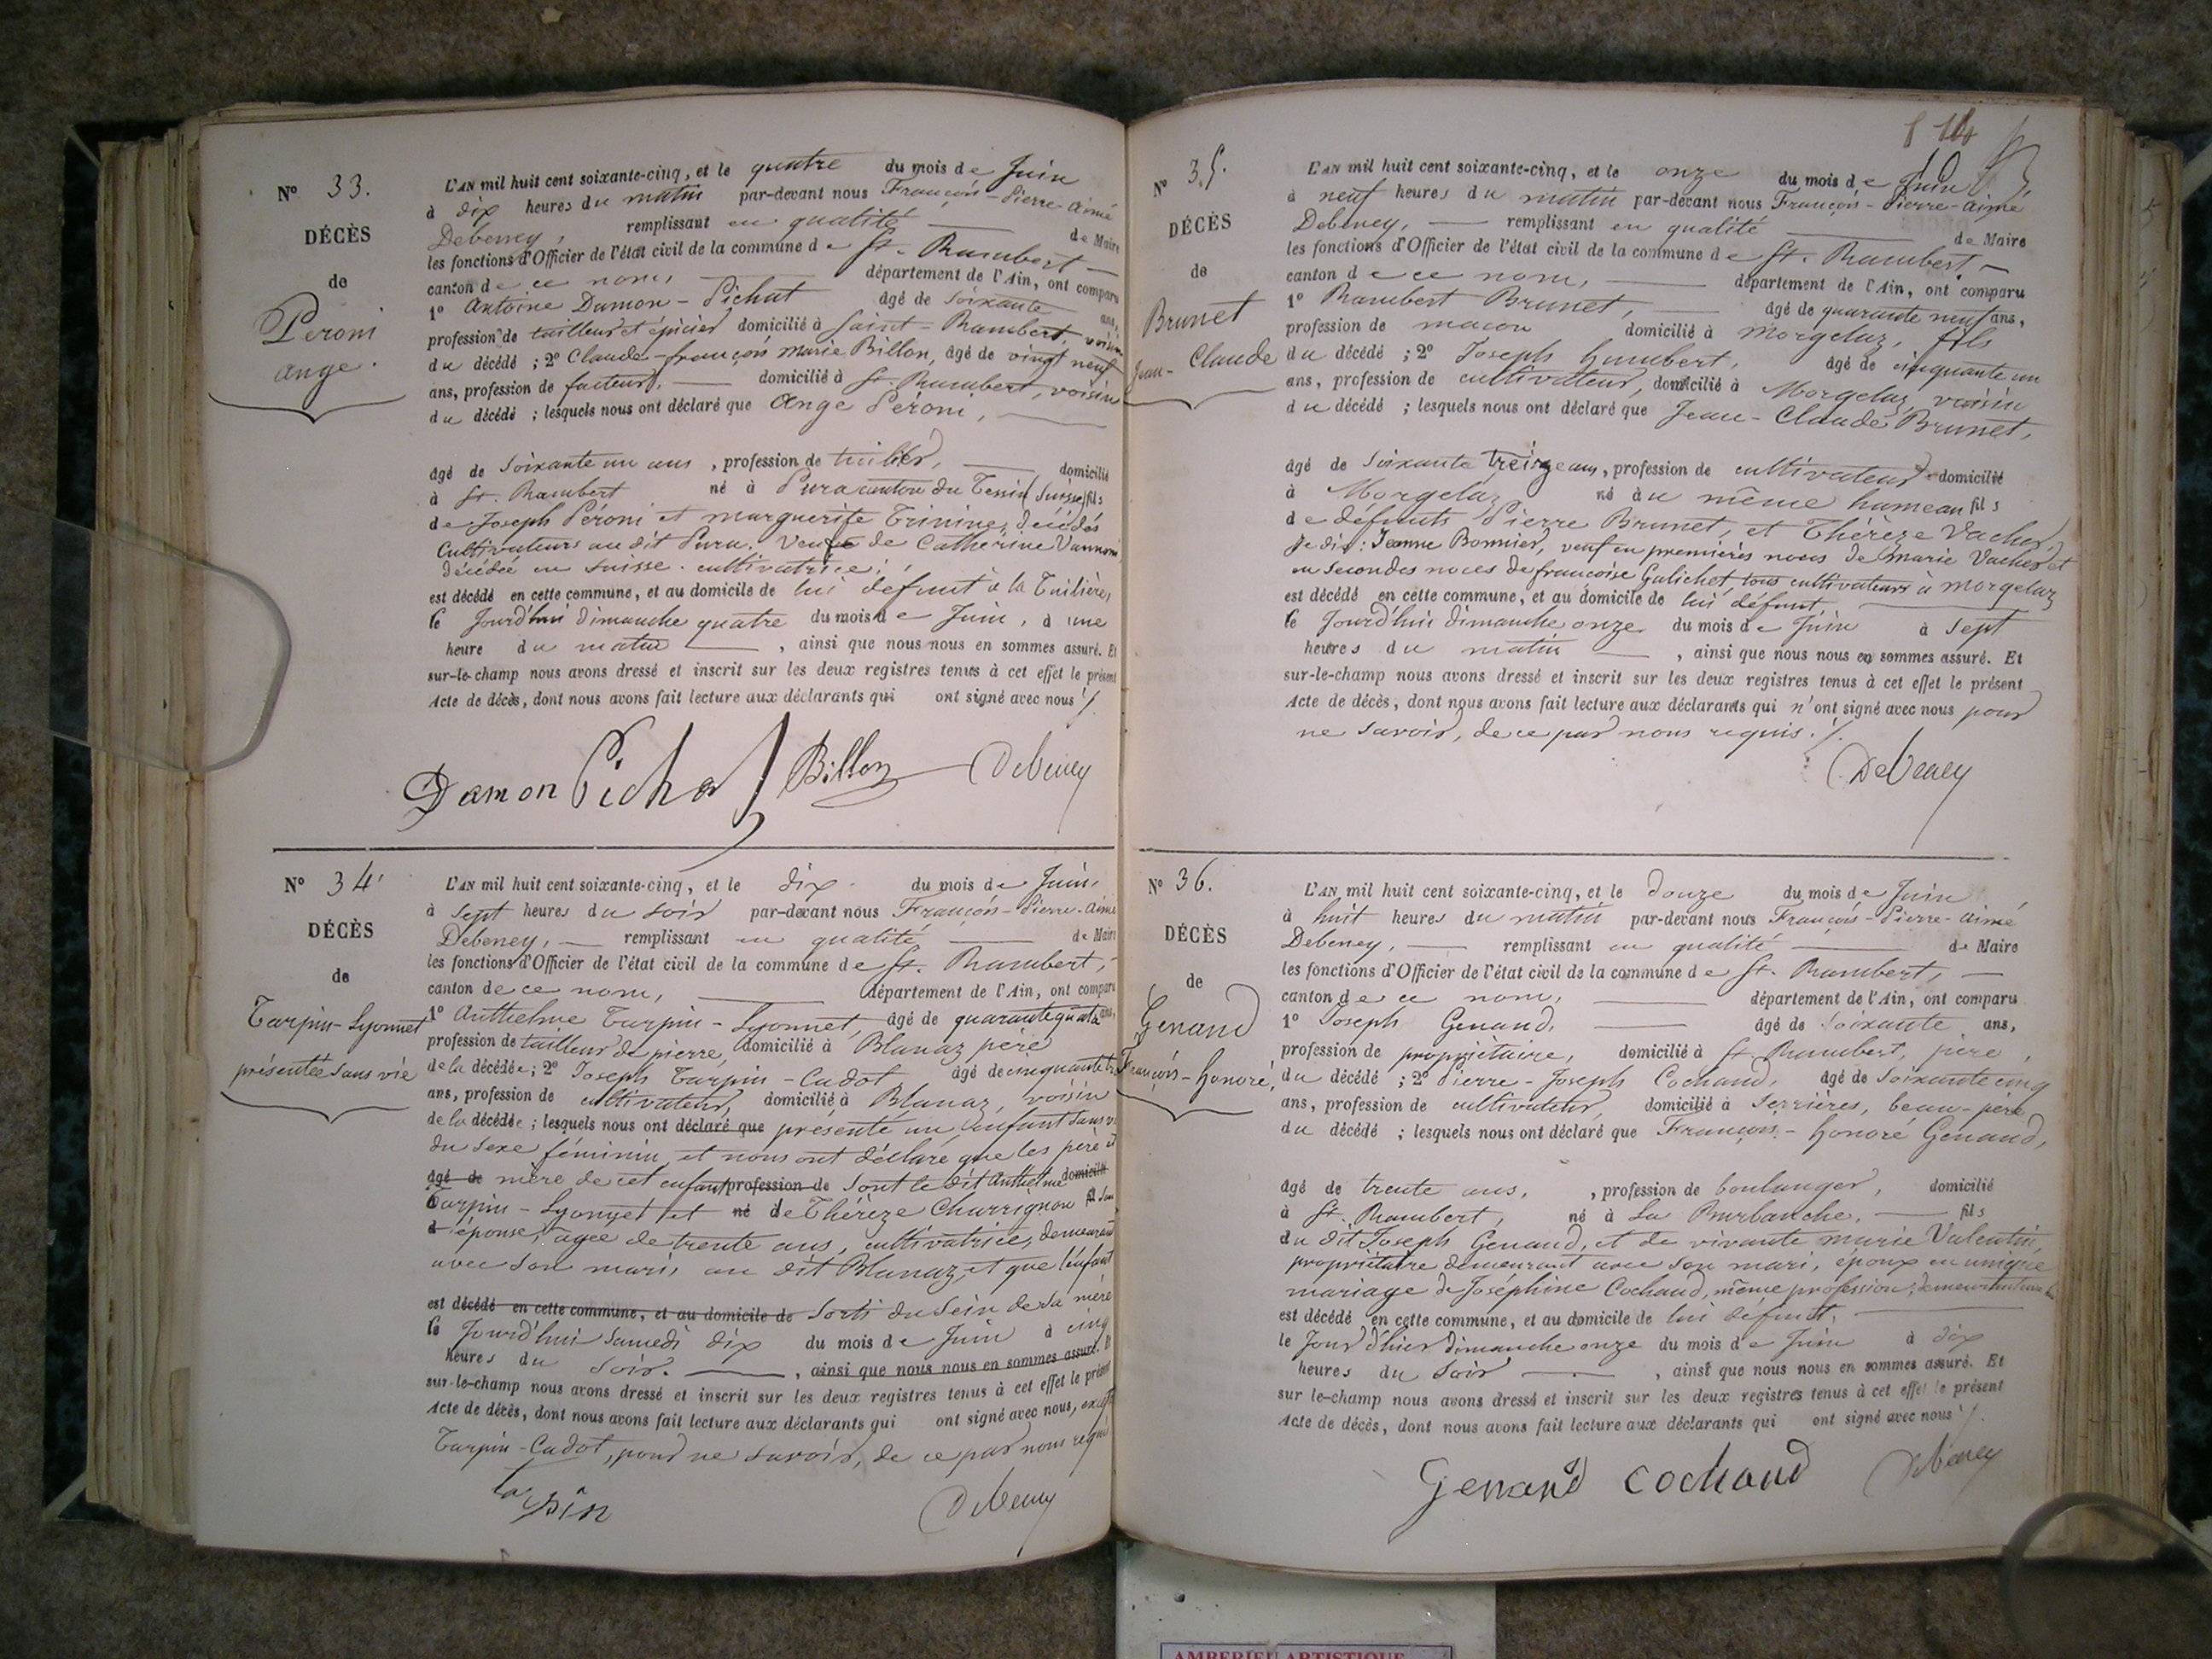 N° 33.
DÉCÈS
de
Peroni
ange.
L'AN mil huit cent soixante-cinq, et le quatre du mois de Juin
à dix heures du matin par-devant nous François-Pierre-aimé
Debeney, remplissant en qualité de Maire
les fonctions d'Officier de l'état civil de la commune de St. Rambert
canton de ce nom, département de l'Ain, ont comparu
1° Antoine Damon-Pichat âgé de soixante ans,
profession de tailleur et épicier domicilié à Saint-Rambert, voisin
du décédé ; 2° Claude-françois Marie Billon, âgé de vingt neuf
ans, profession de facteur, domicilié à St. Rambert, voisin
du décédé ; lesquels nous ont déclaré que Ange Péroni,
âgé de soixante un ans, profession de tuilier, domicilié
à St. Rambert né à Pura canton du Tessin (Suisse) fils
de Joseph Péroni et marguerite Trinine, décédés
cultivateurs au dit Pura. Veuf de Catherine Vannoni
décédée en suisse. cultivatrice ;
est décédé en cette commune, et au domicile de lui défunt à la Tuilière,
le Jourd'hui dimanche quatre du mois de Juin, à une
heure du matin, ainsi que nous nous en sommes assuré. Et
sur-le-champ nous avons dressé et inscrit sur les deux registres tenus à cet effet le présent
Acte de décès, dont nous avons fait lecture aux déclarants qui ont signé avec nous ./.
Damon Pichat Billon Debeney
N° 34
DÉCÈS
de
Tarpin-Lyonnet
présentée sans vie
L'AN mil huit cent soixante-cinq, et le dix du mois de Juin,
à sept heures du soir par-devant nous François-Pierre-aimé
Debeney, remplissant en qualité de Maire
les fonctions d'Officier de l'état civil de la commune de St. Rambert,
canton de ce nom, département de l'Ain, ont comparu
1° Anthelme Tarpin-Lyonnet, âgé de quarante quatre ans,
profession de tailleur de pierre, domicilié à Blanaz père
de la décédée ; 2° Joseph Tarpin-Cadot âgé de cinquante
ans, profession de cultivateur, domicilié à Blanaz, voisin
de la décédée ; lesquels nous ont déclaré que présenté un enfant sans vie
du sexe féminin, et nous ont déclaré que les père et
âgé de mère de cet enfant profession de sont le dit Anthelme domicilié
Tarpin-Lyonnet et né de Thérèze Charrignon fil son
à épouse, agée de trente ans, cultivatrice, demeurant
avec son mari, au dit Blanaz, et que l'enfant
est décédé en cette commune, et au domicile de sorti du sein de sa mère
le Jourd'hui samedi dix du mois de Juin à cinq
heures du soir., ainsi que nous nous en sommes assuré. Et
sur-le-champ nous avons dressé et inscrit sur les deux registres tenus à cet effet le présent
Acte de décès, dont nous avons fait lecture aux déclarants qui ont signé avec nous, excepté
Tarpin-Cadot, pour ne savoir, de ce par nous requis
tarpin Debeney
N° 35.
DÉCÈS
de
Brunet
Jean-Claude
L'AN mil huit cent soixante-cinq, et le onze du mois de Juin
à neuf heures du matin par-devant nous François-Pierre-aimé
Debeney, remplissant en qualité de Maire
les fonctions d'Officier de l'état civil de la commune de St. Rambert,
canton de ce nom, département de l'Ain, ont comparu
1° Rambert Brunet, âgé de quarante neuf ans,
profession de macon domicilié à Morgelaz, fils
du décédé ; 2° Joseph Humbert, âgé de cinquante un
ans, profession de cultivateur, domicilié à Morgelaz, voisin
du décédé ; lesquels nous ont déclaré que Jean-Claude Brunet,
âgé de soixante treize ans, profession de cultivateur domicilié
à Morgelaz né à u même hameau fils
de défunts Pierre Brunet, et Thérèze Vacher,
Je dis : Jeanne Bonnier, veuf en premières noces de Marie Vacher et
en secondes noces de francoise Galichet, tous cultivateurs à Morgelaz
est décédé en cette commune, et au domicile de lui défunt,
le Jourd'hui dimanche onze du mois de Juin à sept
heures du matin, ainsi que nous nous en sommes assuré. Et
sur-le-champ nous avons dressé et inscrit sur les deux registres tenus à cet effet le présent
Acte de décès, dont nous avons fait lecture aux déclarants qui n'ont signé avec nous pour
ne savoir, de ce par nous requis ./.
Debeney
N° 36.
DÉCÈS
de
Genand
François-honoré,
L'AN mil huit cent soixante-cinq, et le douze du mois de Juin
à huit heures du matin par-devant nous François-Pierre-aimé
Debeney, remplissant en qualité de Maire
les fonctions d'Officier de l'état civil de la commune de St. Rambert,
canton de ce nom, département de l'Ain, ont comparu
1° Joseph Genand, âgé de soixante ans,
profession de propriétaire, domicilié à St. Rambert, père,
du décédé ; 2° Pierre-Joseph Cochand, âgé de soixante cinq
ans, profession de cultivateur, domicilié à Serrières, beau-père
du décédé ; lesquels nous ont déclaré que François-honoré Genand,
âgé de trente ans, profession de boulanger, domicilié
à St. Rambert, né à La Burbanche, fils
du dit Joseph Genand, et de vivante marie Valentin,
propriétaire demeurant avec son mari, époux en unique
mariage de Joséphine Cochand, même profession, demeurant
est décédé en cette commune, et au domicile de lui défunt,
le Jour d'hier dimanche onze du mois de Juin à dix
heures du soir, ainsi que nous nous en sommes assuré. Et
sur le-champ nous avons dressé et inscrit sur les deux registres tenus à cet effet le présent
Acte de décès, dont nous avons fait lecture aux déclarants qui ont signé avec nous ./.
Genand Cochand Debeney
AMBERIEU ARTISTIQUE